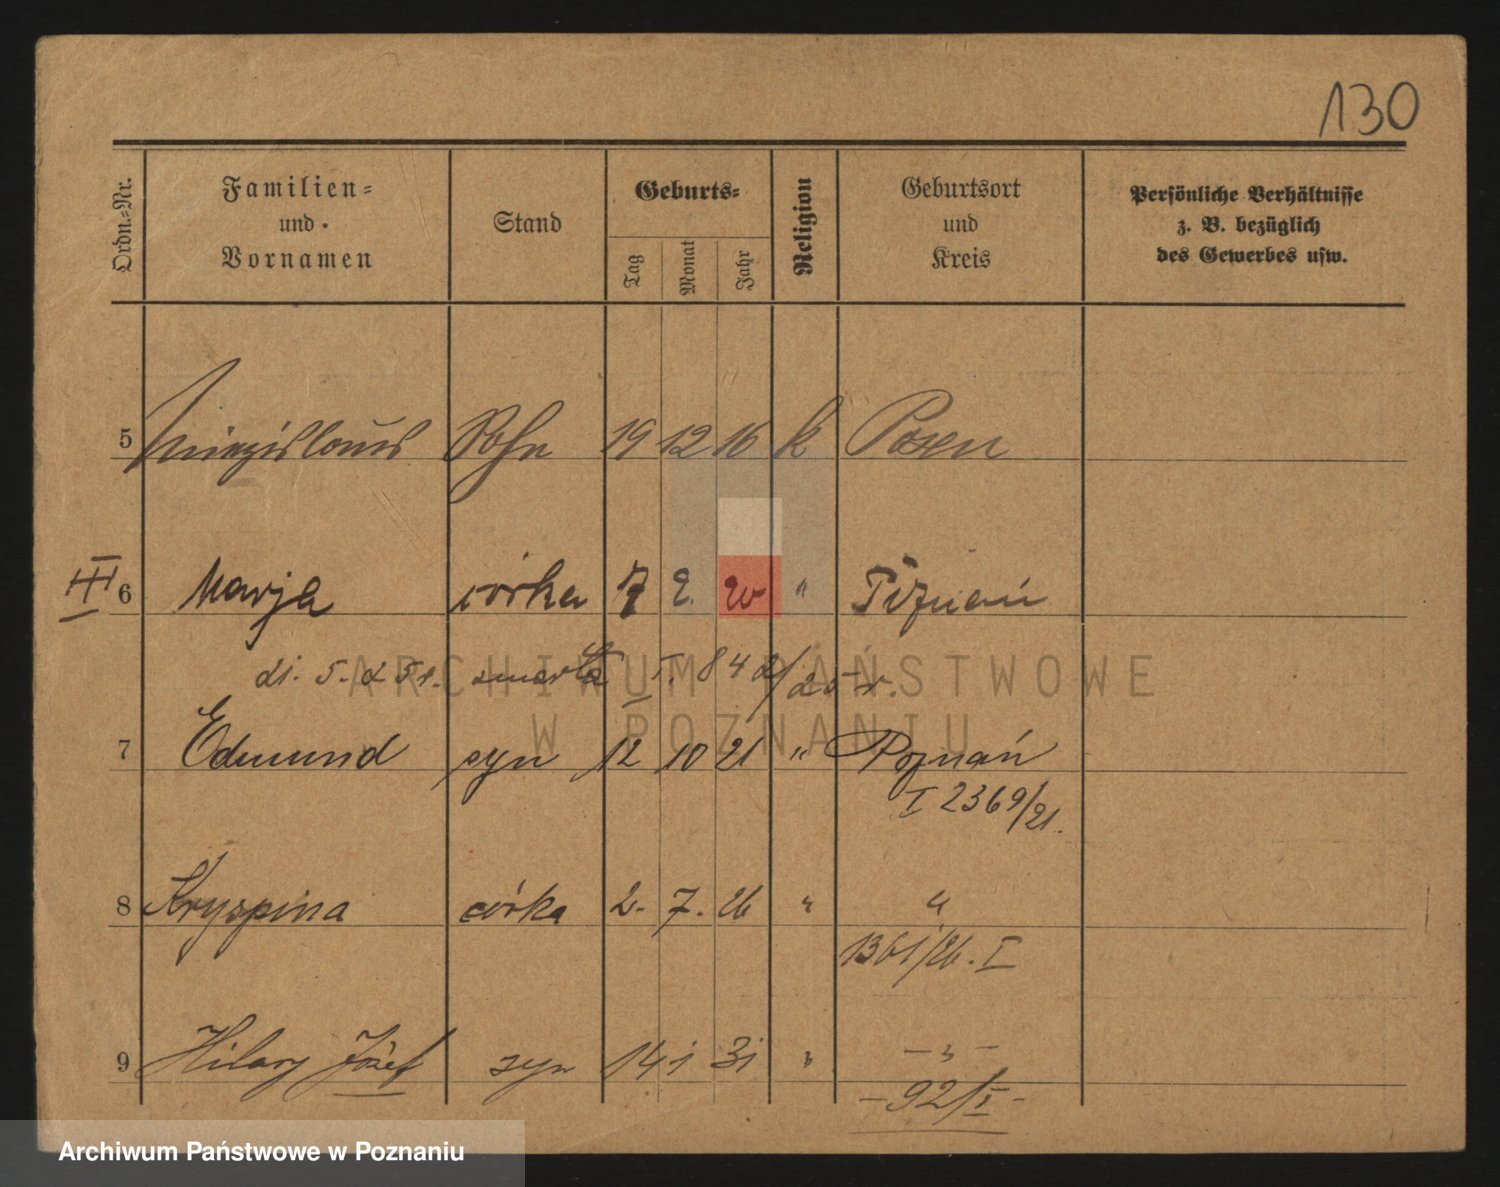 130
Ordn.=Nr.
Familien=
und
Vornamen
Stand
Geburts=
Tag
Monat
Jahr
Religion
Geburtsort
und
Kreis
Persönliche Verhältnisse
z. B. bezüglich
des Gewerbes usw.
5 Sohn 19 12 16 k Posen
III 6 Marja córka 7 2. 20 " Poznań
5. 2 51. zmarła I. 842/25 r.
7 Edmund syn 12 10 21 " Poznań
I 2369/21.
8 Kryspina córka 2. 7. 26 " "
1361/26. I
9 Hilary Józef syn 14 1 31 " — " —
— 92/I —
ARCHIWUM PAŃSTWOWE
W POZNANIU
Archiwum Państwowe w Poznaniu